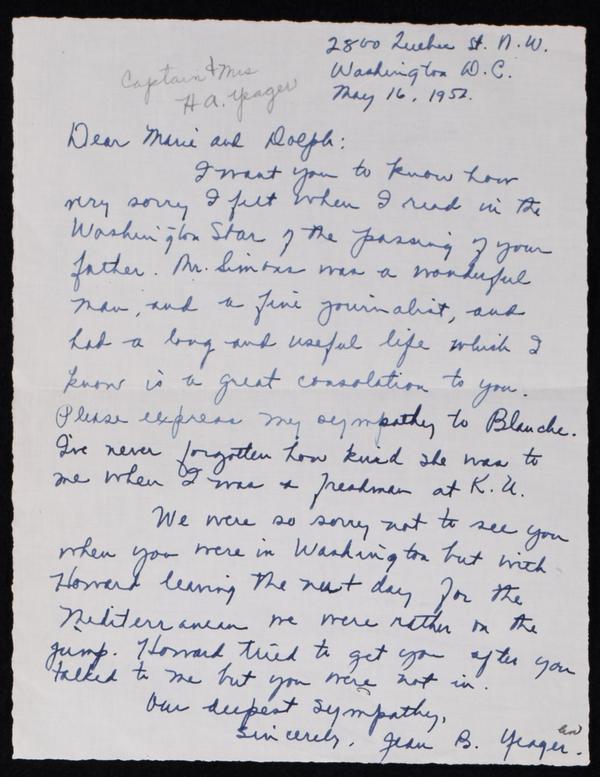 2800 Quebec St. N.W.
Washington D.C.
May 16, 1952.
Captain & Mrs
H A. Yeager
Dear Marie and Dolph:
I want you to know how
very sorry I felt when I read in the
Washington Star of the passing of your
father. Mr. Simons was a wonderful
man, and a fine journalist, and
had a long and useful life which I
know is a great consolation to you.
Please express my sympathy to Blanche.
I've never forgotten how kind she was to
me when I was a freshman at K.U.
We were so sorry not to see you
when you were in Washington but with
Howard leaving the next day for the
Mediterranean we were rather on the
jump. Howard tried to get you after you
talked to me but you were not in.
Our deepest sympathy,
Sincerely, Jean B. Yeager.